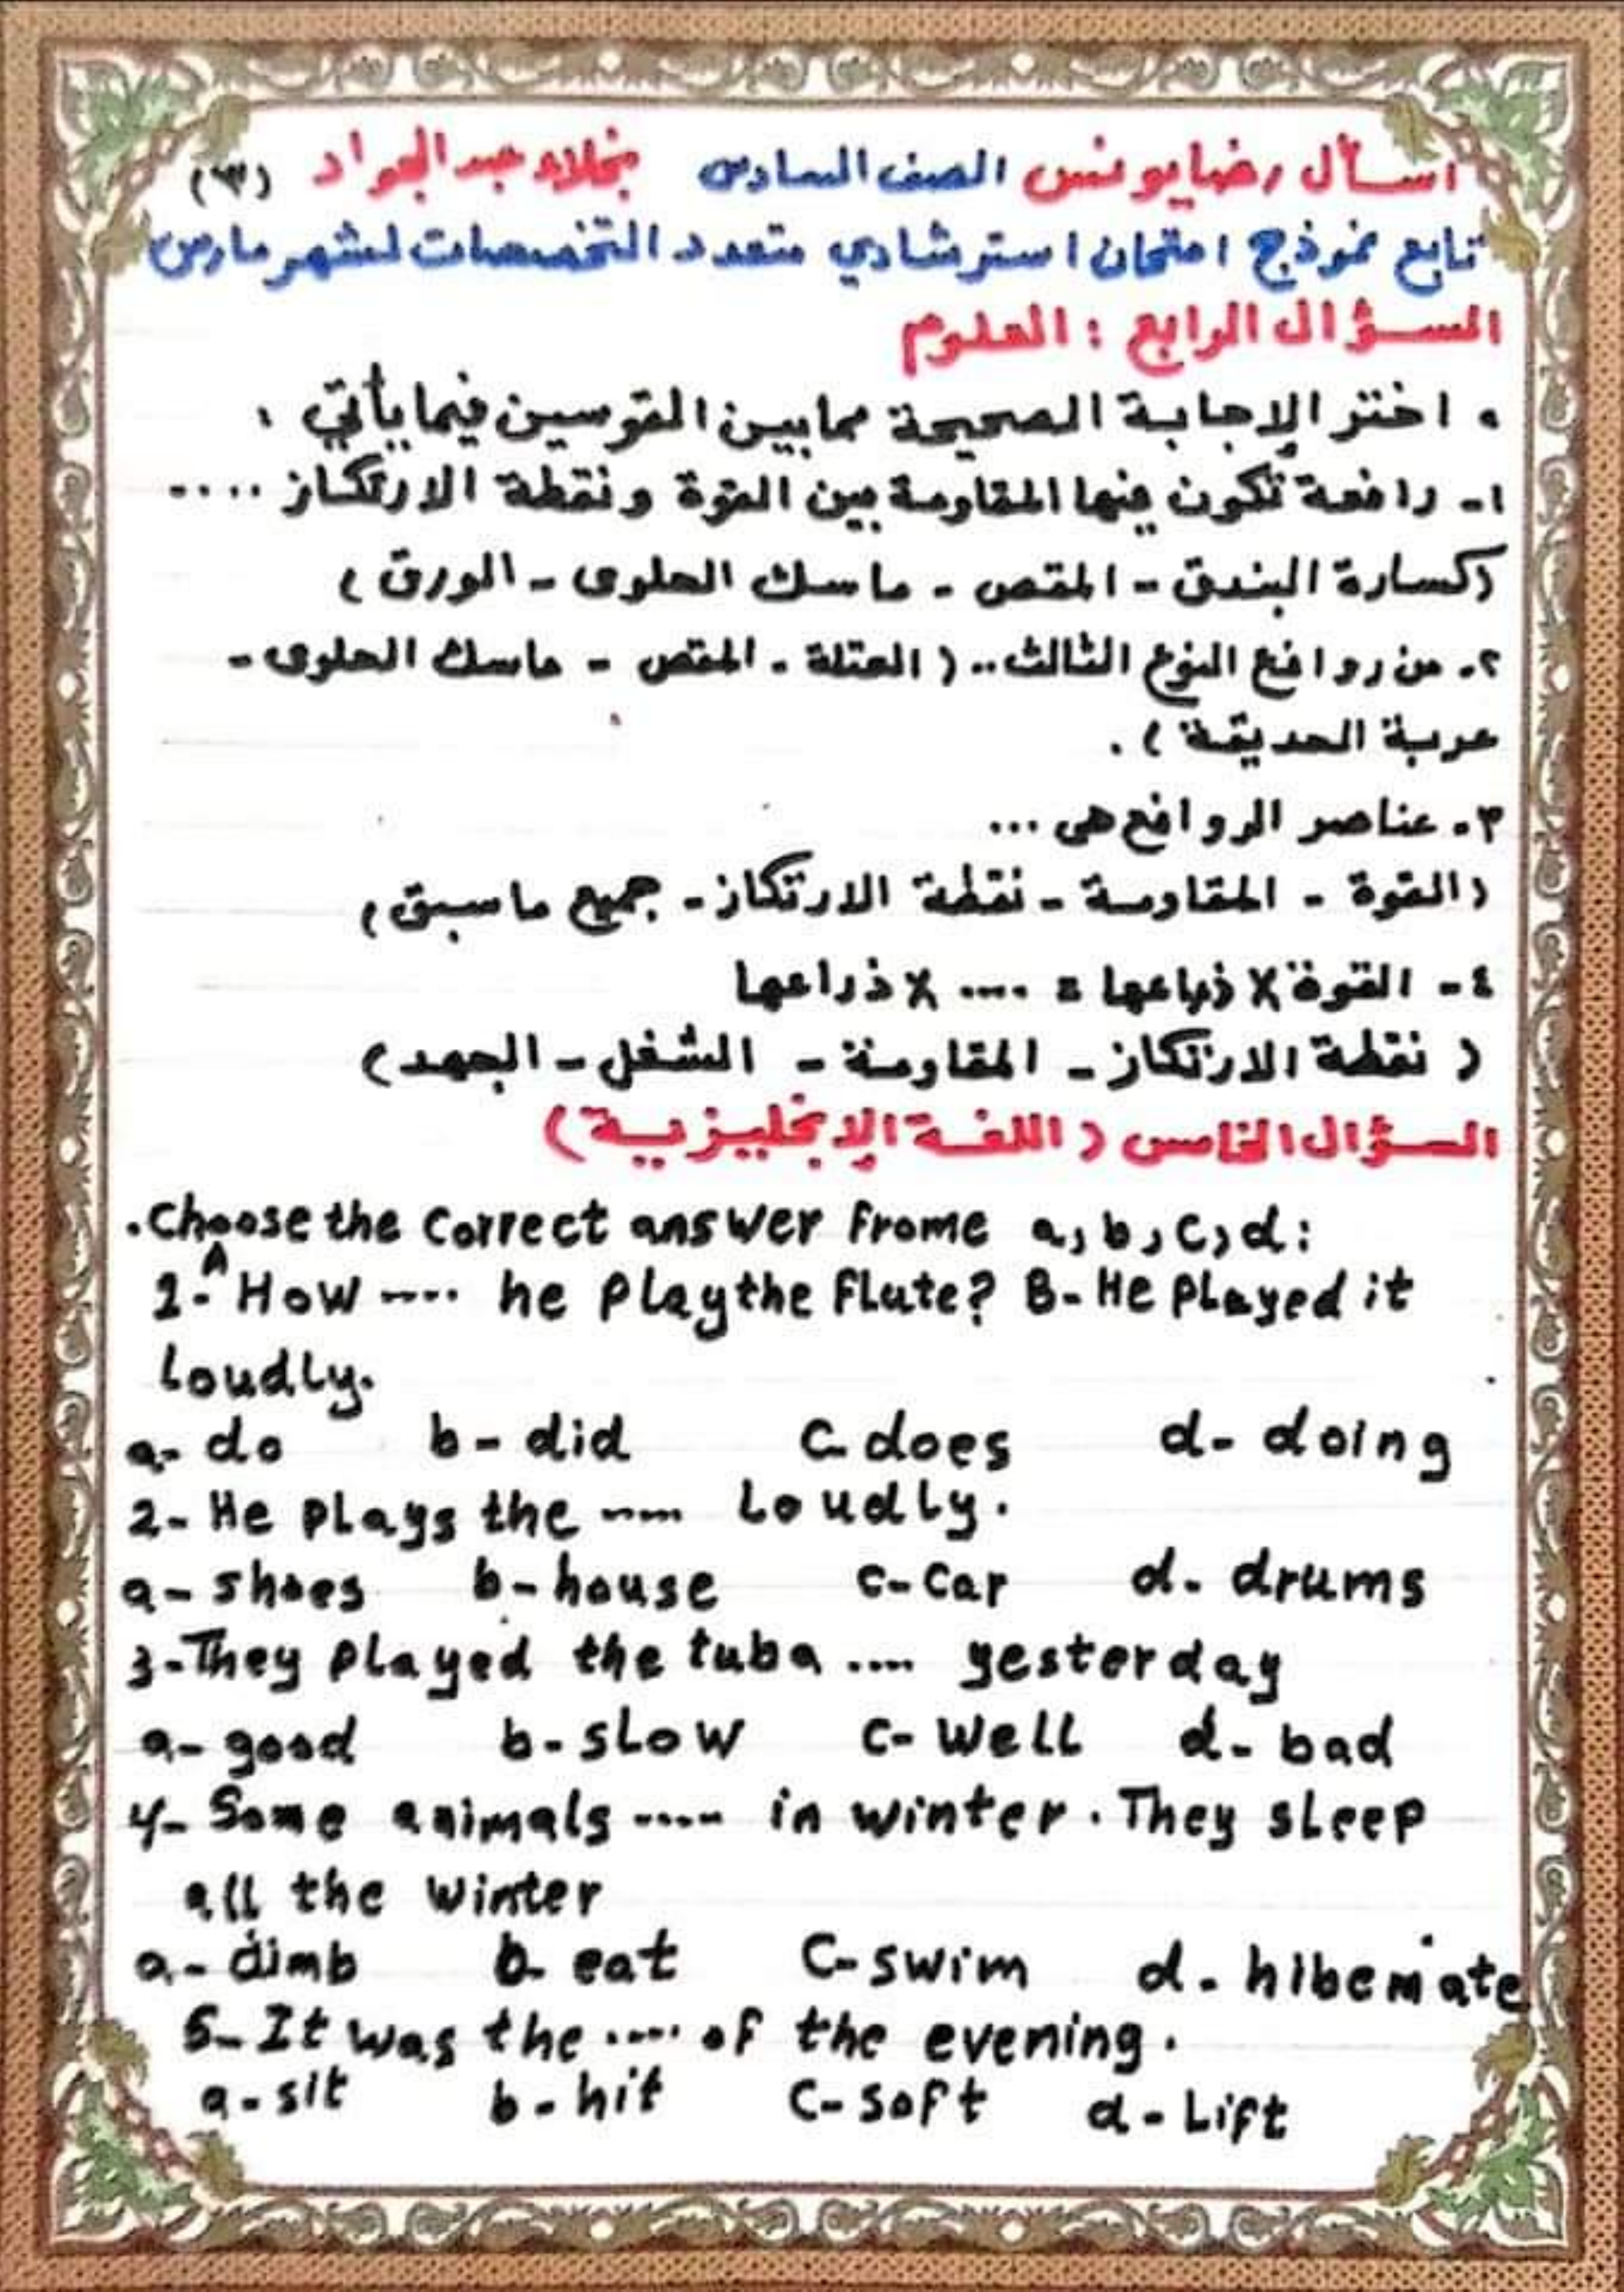 اسأل رضا يونس الصف السادس نجلاء عبد الجواد (٣)
تابع نموذج امتحان استرشادي متعدد التخصصات لشهر مارس
السؤال الرابع : العلوم
• اختر الإجابة الصحيحة مما بين القوسين فيما يأتي :
١- رافعة تكون فيها المقاومة بين القوة ونقطة الارتكاز ....
(كسارة البندق - المقص - ماسك الحلوى - الورق)
٢- من روافع النوع الثالث .. (العتلة - المقص - ماسك الحلوى -
عربة الحديقة) .
٣- عناصر الروافع هى ...
(القوة - المقاومة - نقطة الارتكاز - جميع ما سبق)
٤- القوة X ذراعها = .... X ذراعها
(نقطة الارتكاز - المقاومة - الشغل - الجهد)
السؤال الخامس (اللغة الإنجليزية)
. Choose the correct answer frome a, b, c, d:
1- A How .... he play the flute? B- He played it
loudly.
a- do b- did c- does d- doing
2- He plays the .... loudly.
a- shoes b- house c- car d- drums
3- They played the tuba .... yesterday
a- good b- slow c- well d- bad
4- Some animals .... in winter. They sleep
all the winter
a- climb b- eat c- swim d- hibernate
5- It was the .... of the evening.
a- sit b- hit c- soft d- lift